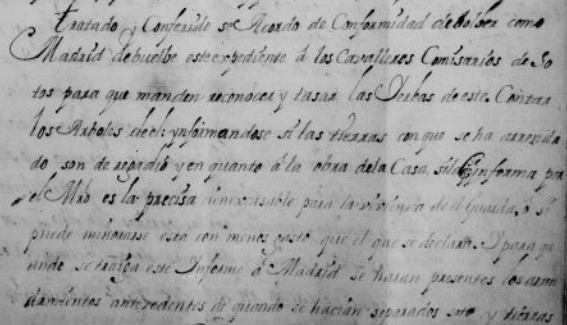 tratado y Conferido se Acordo de Conformidad de bolber como
Madrid debuelbe este expediente á los Cavalleros Comisarios de So
tos para que manden reconocer y tasar las Yerbas de este. Contar
los Arboles de el: ynformandose si las tierras con que se ha arrenda
do son de regadio y en quanto á la obra dela Casa, si la que informa por
el Mro es la precisa è inexcusable para la vivienda de el Guarda, ó si
puede minorarse esta con menos gasto que el que se declara. Y para qu
ando se traiga este Informe á Madrid se haran presentes los arren
damientos antecedentes de quando se hacian separados soto y tierras